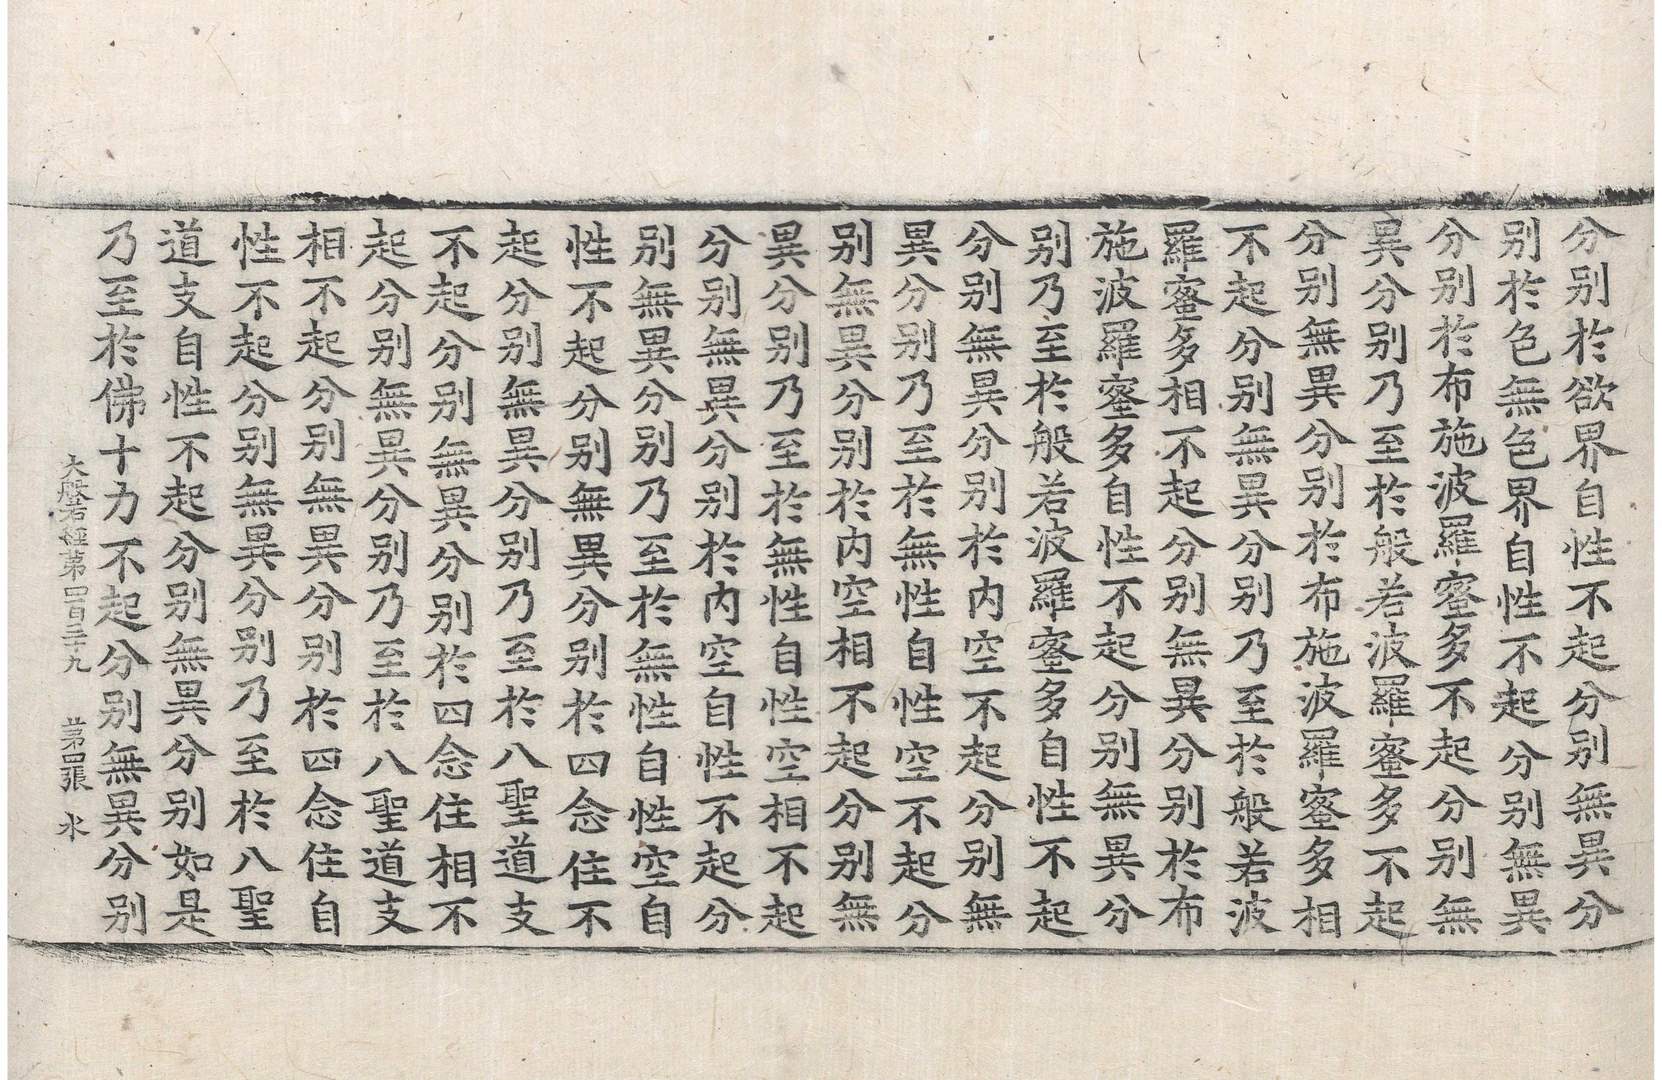 分别於欲界自性不起分别無異分
别於色無色界自性不起分别無異
分别於布施波羅蜜多不起分别無
異分别乃至於般若波羅蜜多不起
分别無異分别於布施波羅蜜多相
不起分别無異分别乃至於般若波
羅蜜多相不起分别無異分别於布
施波羅蜜多自性不起分别無異分
别乃至於般若波羅蜜多自性不起
分别無異分别於内空不起分别無
異分别乃至於無性自性空不起分
别無異分别於内空相不起分别無
異分别乃至於無性自性空相不起
分别無異分别於内空自性不起分
别無異分别乃至於無性自性空自
性不起分别無異分别於四念住不
起分别無異分别乃至於八聖道支
不起分别無異分别於四念住相不
起分别無異分别乃至於八聖道支
相不起分别無異分别於四念住自
性不起分别無異分别乃至於八聖
道支自性不起分别無異分别如是
乃至於佛十力不起分别無異分别
大般若經第四百三十九 第四張 水